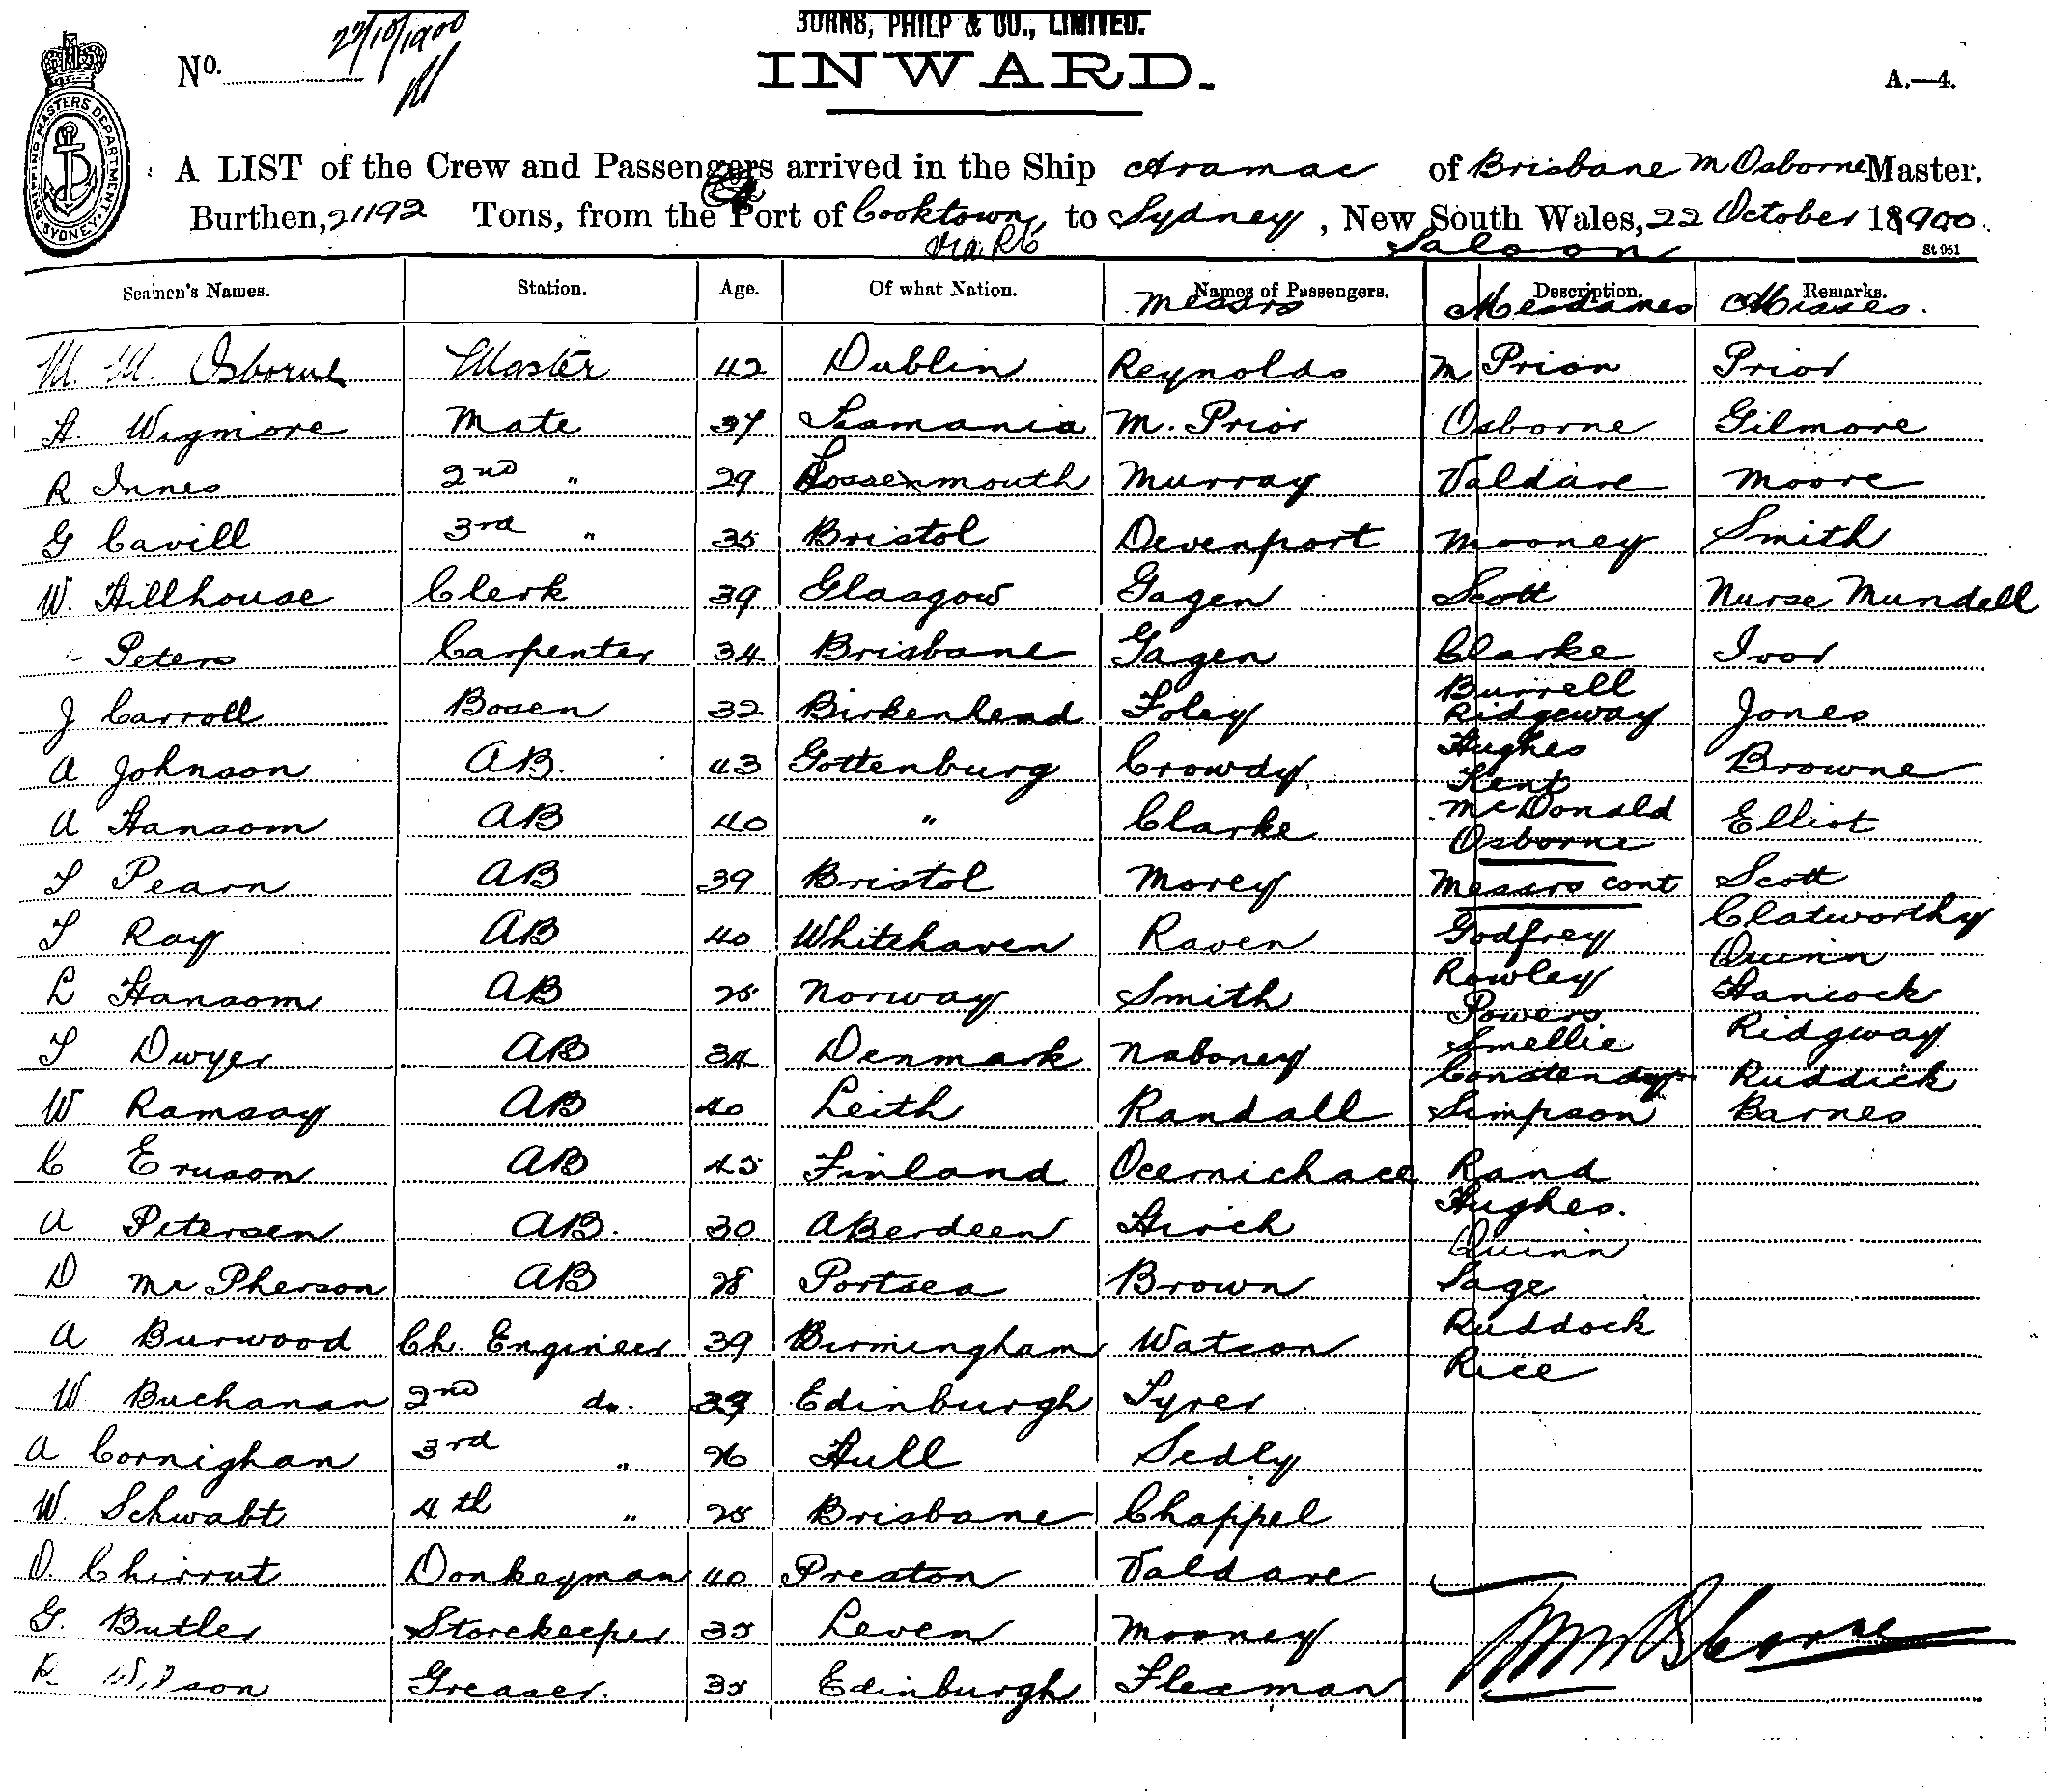 BURNS, PHILP & CO., LIMITED.
No. 22/10/1900
INWARD.
A.—4.
SHIPPING MASTERS DEPARTMENT. SYDNEY.
A LIST of the Crew and Passengers arrived in the Ship Aramac of Brisbane M Osborne Master,
Burthen, 21192 Tons, from the Port of Cooktown, to Sydney, New South Wales, 22 October 18900.
via
Saloon
St 951
Seamen's Names. Station. Age. Of what Nation. Names of Passengers. Description. Remarks.
Messrs Mesdames Misses.
M. M. Osborne Master 42 Dublin Reynolds M Prior Prior
H. Wigmore Mate 37 Tasmania M. Prior Osborne Gilmore
R Innes 2nd " 29 Lossenmouth Murray Valdare Moore
G Cavill 3rd " 35 Bristol Devenport Mooney Smith
W. Hillhouse Clerk 39 Glasgow Gagen Scott Nurse Mundell
Peters Carpenter 34 Brisbane Gagen Clarke Ivor
Burrell
J Carroll Bosen 32 Birkenhead Foley Ridgeway Jones
Hughes
A Johnson AB. 43 Gottenburg Crowdy Kent Browne
McDonald
A Hansom AB 40 " Clarke Osborne Elliot
T Pearn AB 39 Bristol Morey Messrs cont Scott
Clatworthy
T Ray AB 40 Whitehaven Raven Godfrey Quinn
Rowley
L Hansom AB 25 Norway Smith Powers Hancock
Smellie Ridgway
T Dwyer AB 34 Denmark Naboney Ruddick
W Ramsay AB 40 Leith Randall Simpson Barnes
C Eruson AB 45 Finland Ocernichace Rand
Hughes.
A Petersen AB. 30 ABerdeen Hirch Quinn
D McPherson AB 28 Portsea Brown Sage
Ruddock
A Burwood Ch. Engineer 39 Birmingham Watson Rice
W Buchanan 2nd do. 39 Edinburgh Tyrer
A Cornighan 3rd " 26 Hull Sedly
W. Schwabt 4th " 25 Brisbane Chappel
D. Chirrut Donkeyman 40 Preston Valdare
G. Butler Storekeeper 35 Leven Mooney
R Wilson Greaser. 35 Edinburgh Flexman
M M Osborne